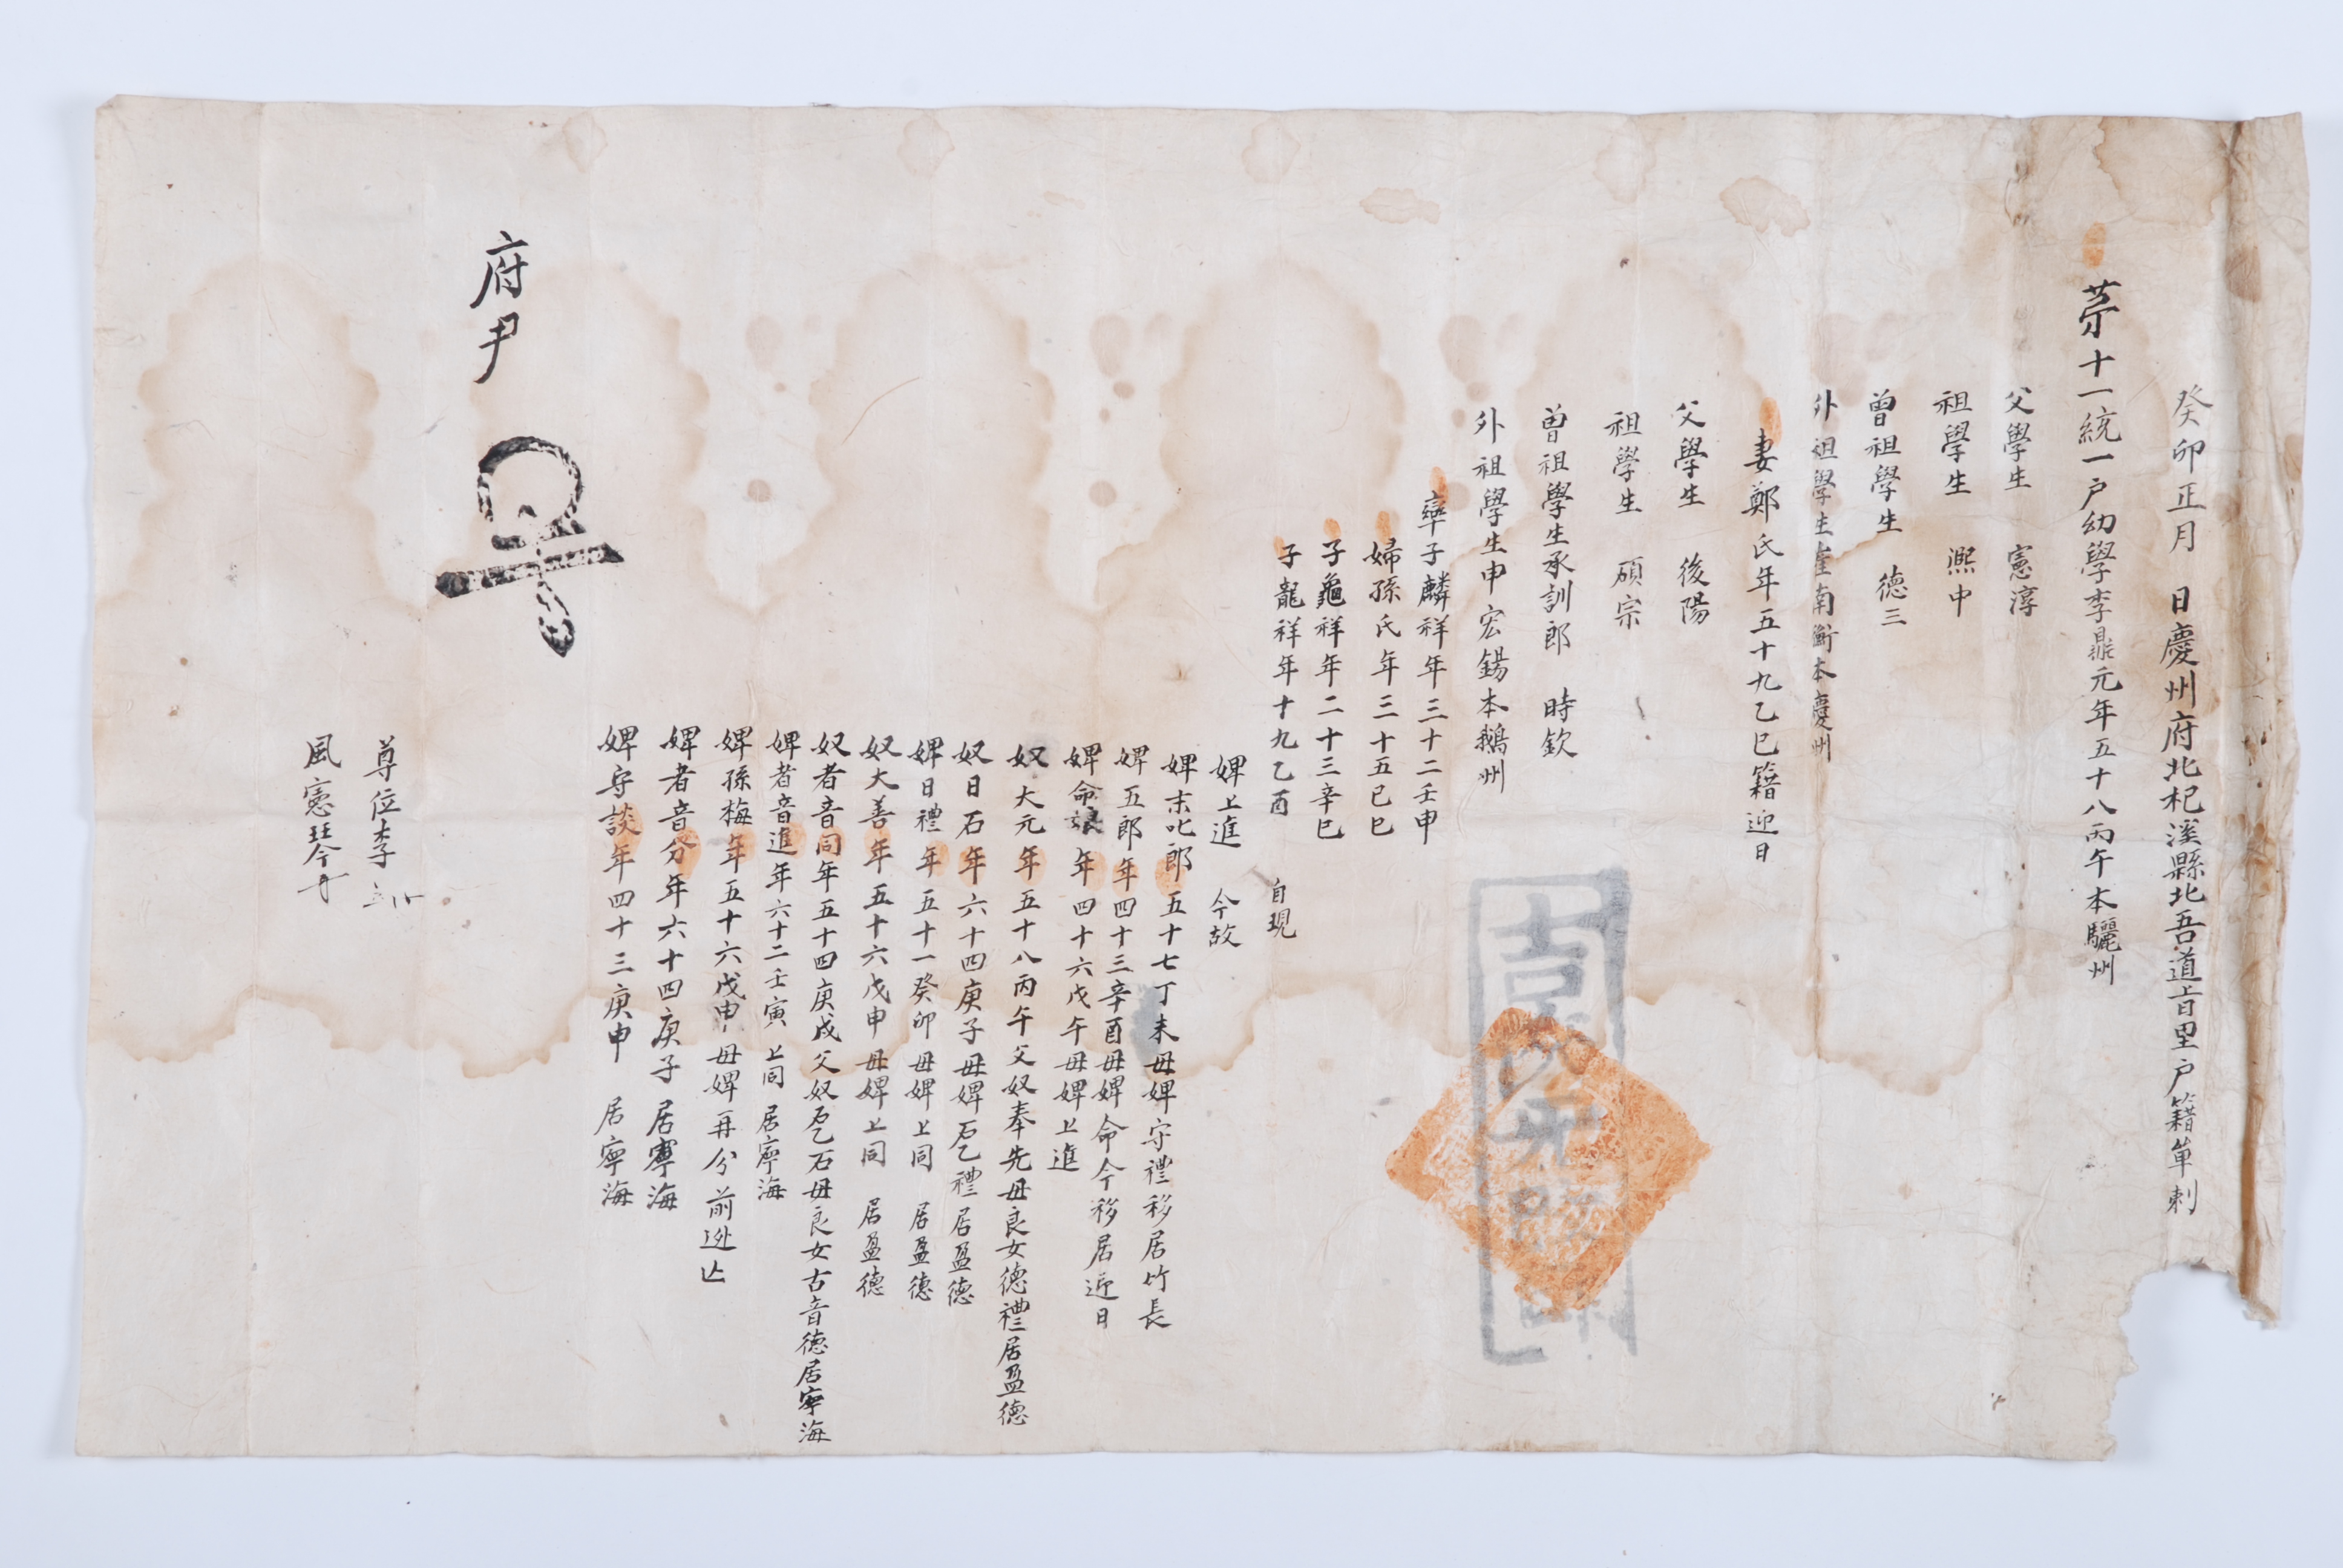 癸卯正月 日慶州府北杞溪縣北吾道旨里戶籍單刺
苐十一統一戶幼學李鼎元年五十八丙午本驪州
父學生 憲淳
祖學生 凞中
曾祖學生 德三
外祖學生崔南衡本慶州
妻鄭氏年五十九乙巳籍迎日
父學生 後陽
祖學生 碩宗
曾祖學生承訓郎 時欽
外祖學生申宏錫本鵝州
率子麟祥年三十二壬申
婦孫氏年三十五已巳
子龜祥年二十三辛巳
子龍祥年十九乙酉
自現
婢上進 今故
婢末叱郎五十七丁未母婢守禮移居竹長
婢五郎年四十三辛酉母婢命今移居迎日
婢命娘年四十六戊午母婢上進
奴大元年五十八丙午父奴奉先母良女德禮居盈德
奴日石年六十四庚子母婢乭禮居盈德
婢日禮年五十一癸卯母婢上同 居盈德
奴大善年五十六戊申母婢上同 居盈德
奴者音同年五十四庚戌父奴乭石母良女古音德居寧海
婢者音進年六十二壬寅 上同 居寧海
婢孫梅年五十六戊申母婢再分前迯亡
婢者音分年六十四庚子 居寧海
婢守談年四十三庚申 居寧海
府尹
尊位李
風憲琴